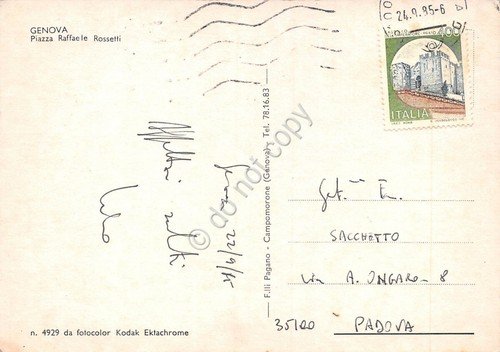 GENOVA
Piazza Raffaele Rossetti
24.9.85-6
400
ITALIA
Genova 22/9/85
Affettuosi saluti
F.lli Pagano - Campomorone (Genova) - Tel. 78.16.83
© do not copy
SACCHETTO
Via A. ONGARO - 8
35100 PADOVA
n. 4929 da fotocolor Kodak Ektachrome